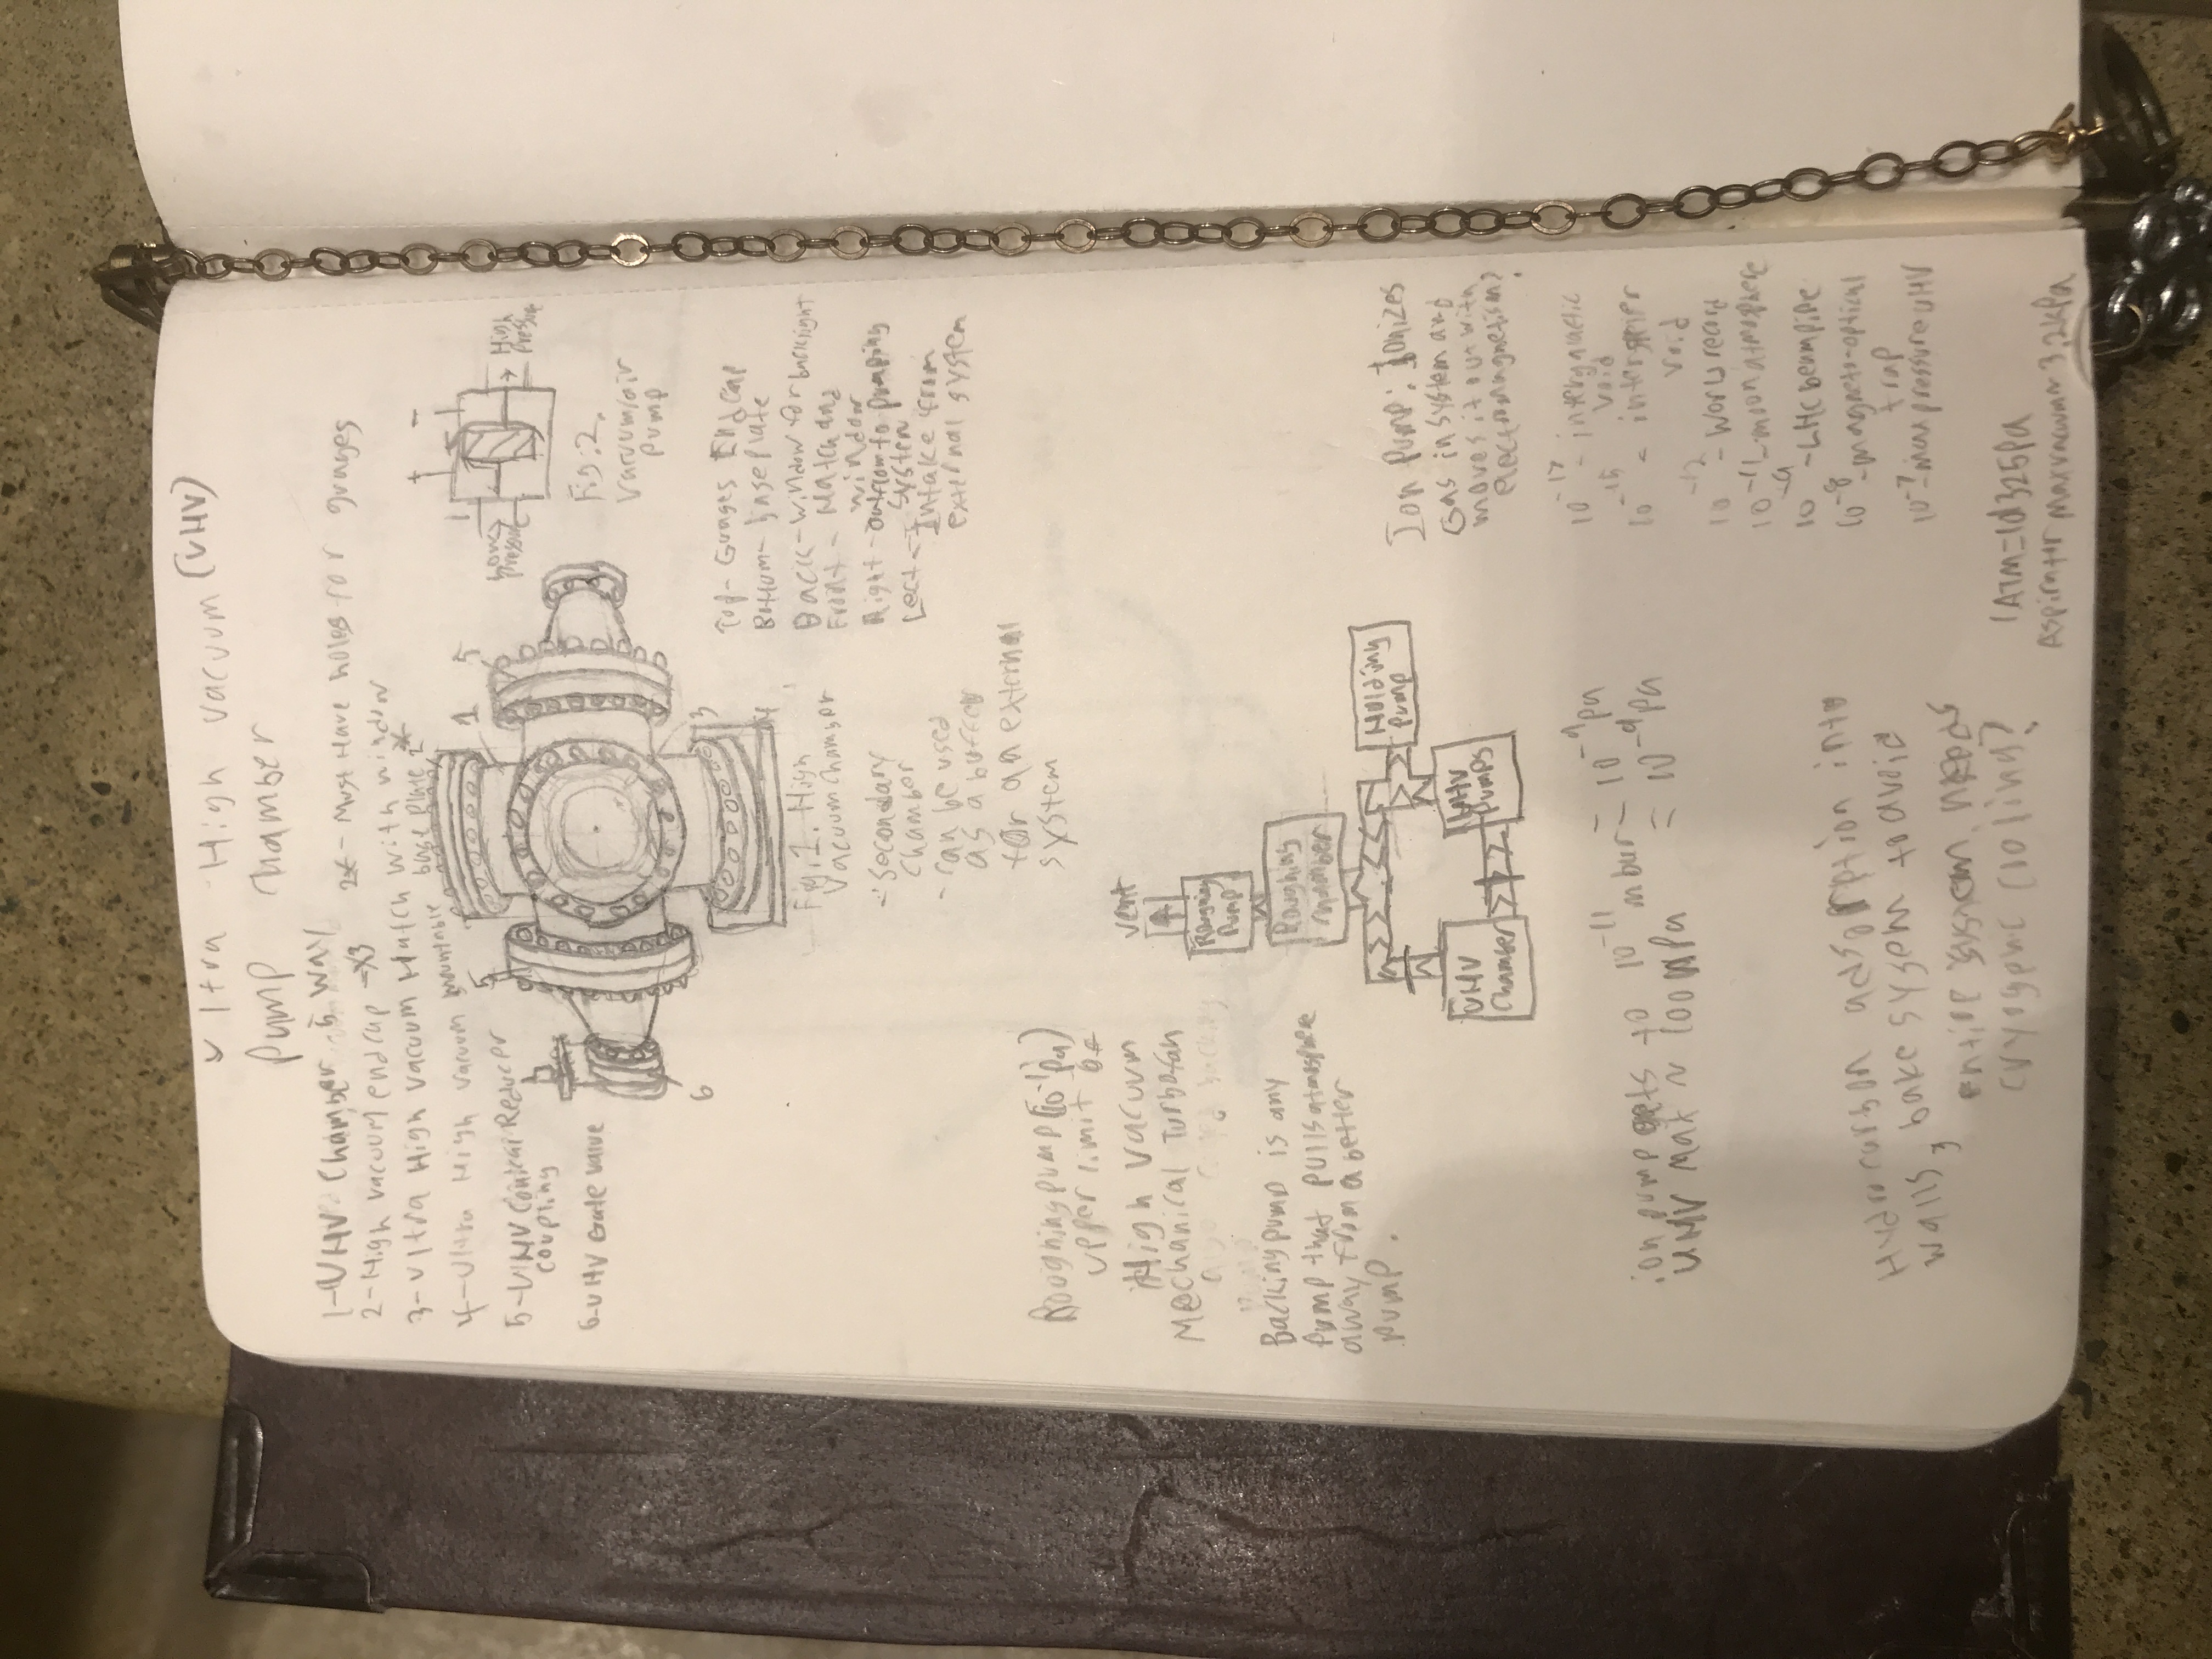 Ultra-High vacuum (UHV)
Pump chamber
1-UHV Chamber 5 way
2-High vacuum endcap -x3
2* - Must Have holes for guages
3-Ultra High vacuum Hatch with window
4-Ultra High vacuum mountable base plate
5-UHV Conical Reducer
coupling
6-UHV Gate valve
1
2*
3
4
5
5
6
Fig. 1. High
vacuum chamber
-Secondary
chamber
-can be used
as a buffer
for an external
system
Low
Pressure
High
Pressure
Fig. 2.
Vacuum/air
pump
Top- Guages End cap
Bottom- base plate
Back-window for backlight
Front- Hatch and
window
Right-outtake to pumping
system
Left-Intake from
external system
Roughing pump (10^-1 pa)
upper limit
High Vacuum
Mechanical Turbofan
Backing pump is any
pump that pulls atmosphere
away from a better
pump.
vent
Roughing
Pump
Roughing
chamber
Holding
Pump
UHV
Pumps
UHV
Chamber
Ion Pump: Ionizes
Gas in system and
moves it out with
electromagnetism?
10^-17 - intergalactic
void
10^-15 - interstellar
void
10^-12 - World record
10^-11 - moon atmosphere
10^-9 - LHC beampipe
10^-8 - magneto-optical
trap
10^-7 - max pressure UHV
ion pump gets to 10^-11 mbar = 10^-9 pa
= 10^-9 pa
UHV Max ~ 100 nPa
Hydrocarbon adsorption into
walls, bake system to avoid
entire system needs
cryogenic cooling?
1ATM=101325Pa
Aspirator max vacuum 3.2kPa